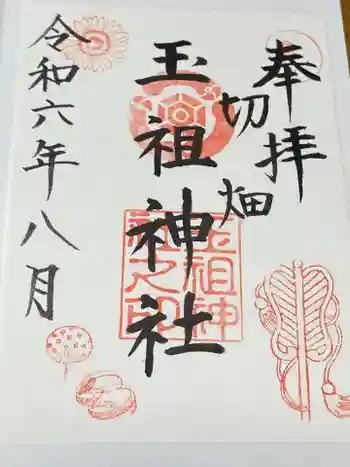 奉拝
切畑
玉祖神社
令和六年八月
玉祖神
社之印